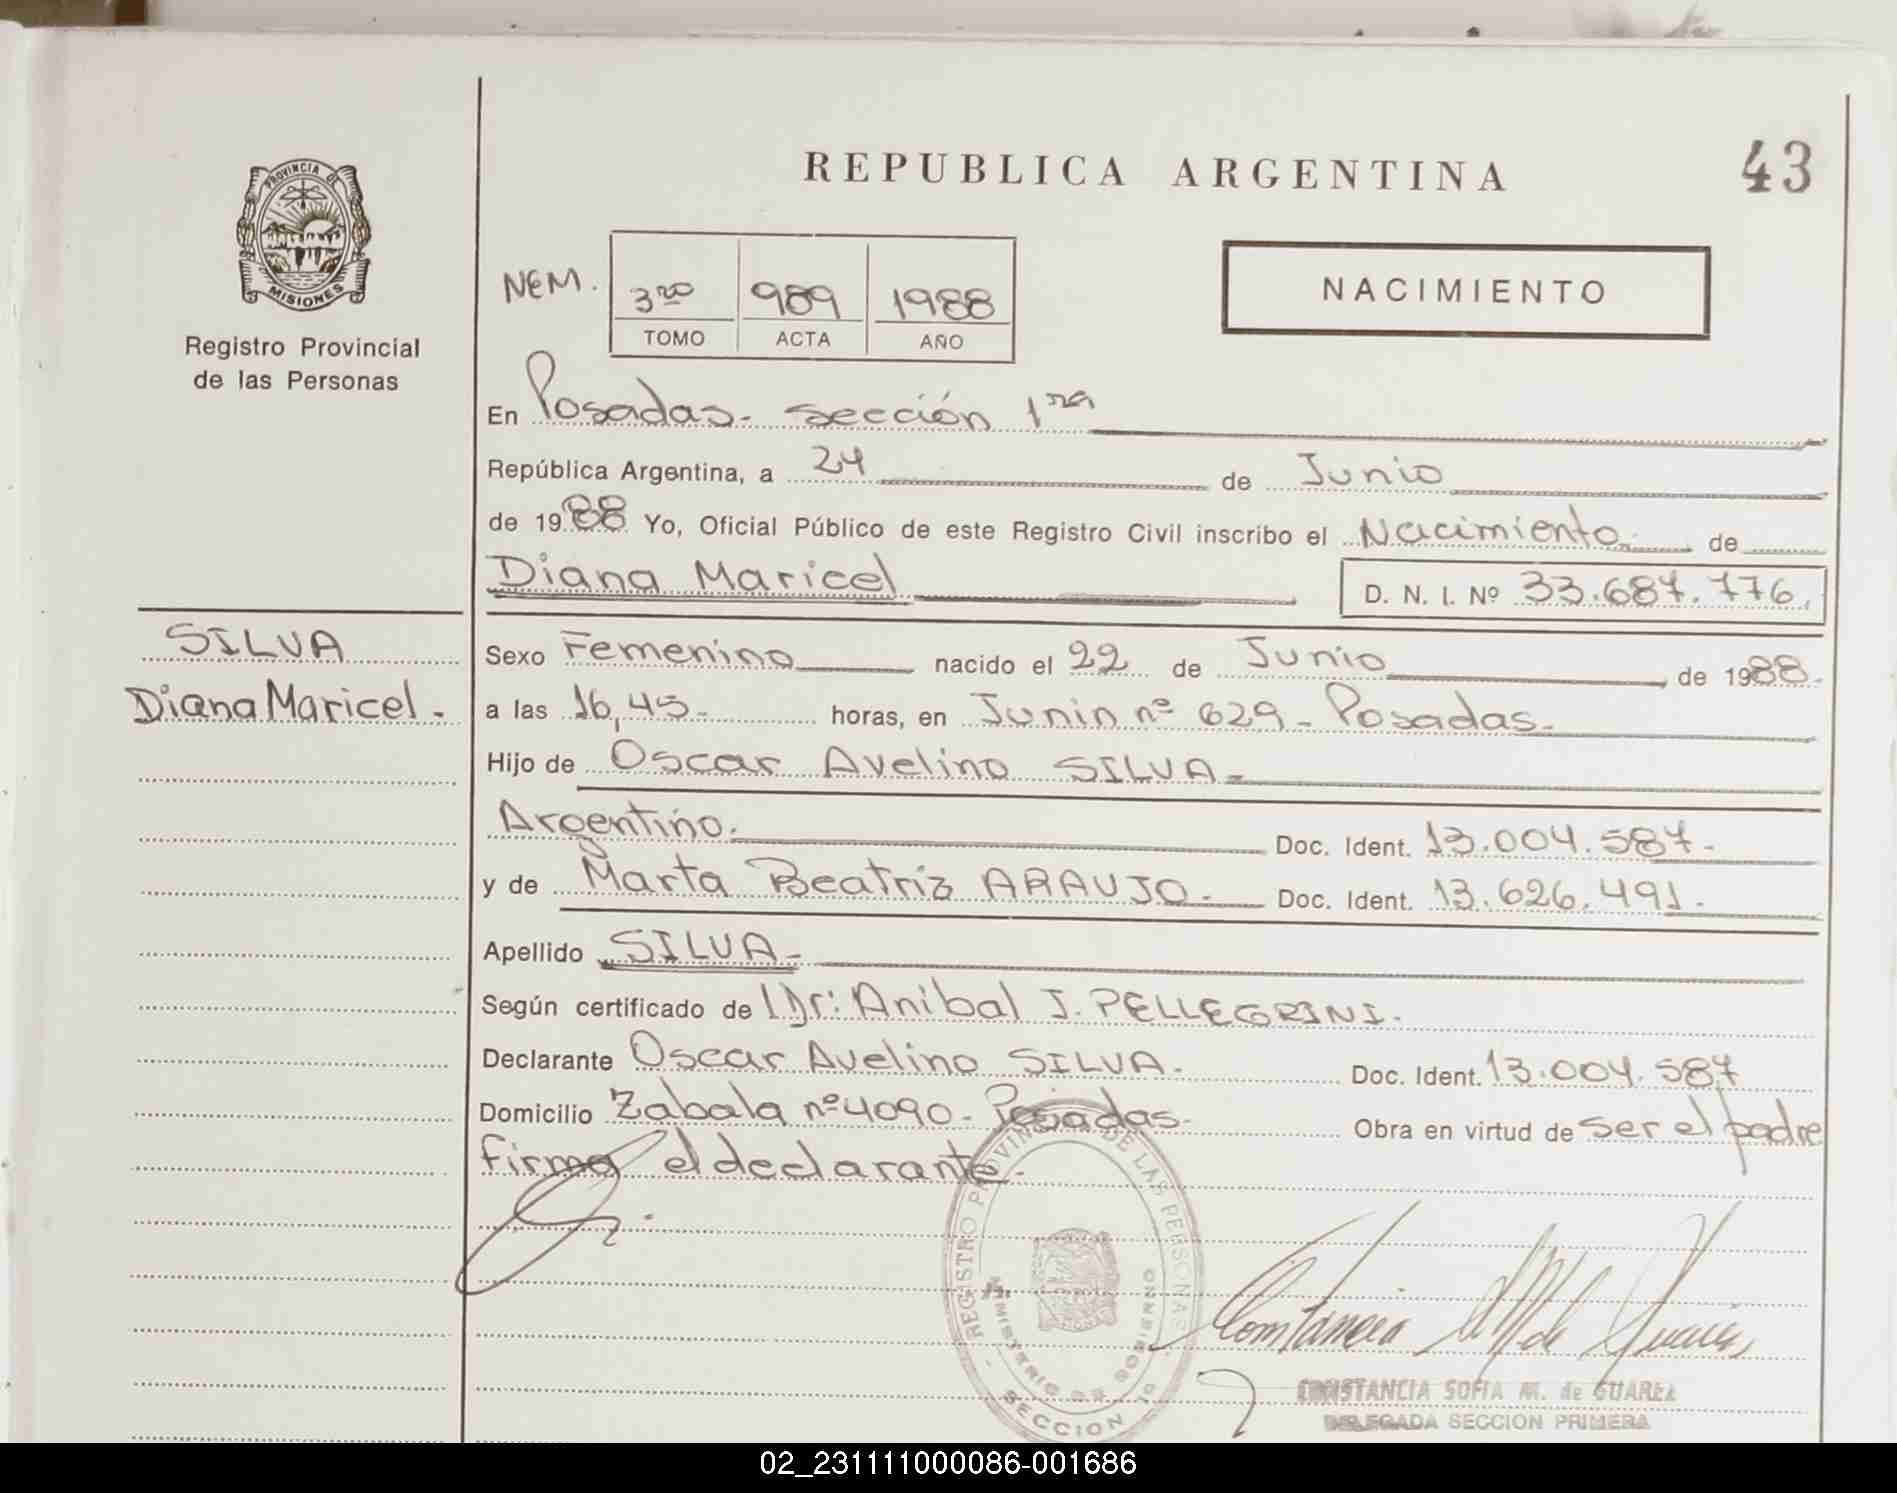 REPUBLICA ARGENTINA
43
PROVINCIA DE
MISIONES
Registro Provincial
de las Personas
NEM.
3ro 989 1988
TOMO ACTA AÑO
NACIMIENTO
En Posadas- sección 1ra
República Argentina, a 24 de Junio
de 1988 Yo, Oficial Público de este Registro Civil inscribo el Nacimiento de
Diana Maricel D. N. I. Nº 33.687.776.
SILVA
Diana Maricel.
Sexo Femenino nacido el 22 de Junio de 1988.
a las 16,45- horas, en Junin nº 629- Posadas-
Hijo de Oscar Avelino SILVA-
Argentino. Doc. Ident. 13.004.587-
y de Marta Beatriz ARAUJO- Doc. Ident. 13.626.491.
Apellido SILVA-
Según certificado de Dr: Anibal J. PELLEGRINI.
Declarante Oscar Avelino SILVA. Doc. Ident. 13.004.587
Domicilio Zabala nº 4090- Posadas- Obra en virtud de ser el padre
firma el declarante.
REGISTRO PROVINCIAL DE LAS PERSONAS
MINISTERIO DE GOBIERNO
SECCION 1º
CONSTANCIA SOFIA M. de SUAREZ
DELEGADA SECCION PRIMERA
02_231111000086-001686